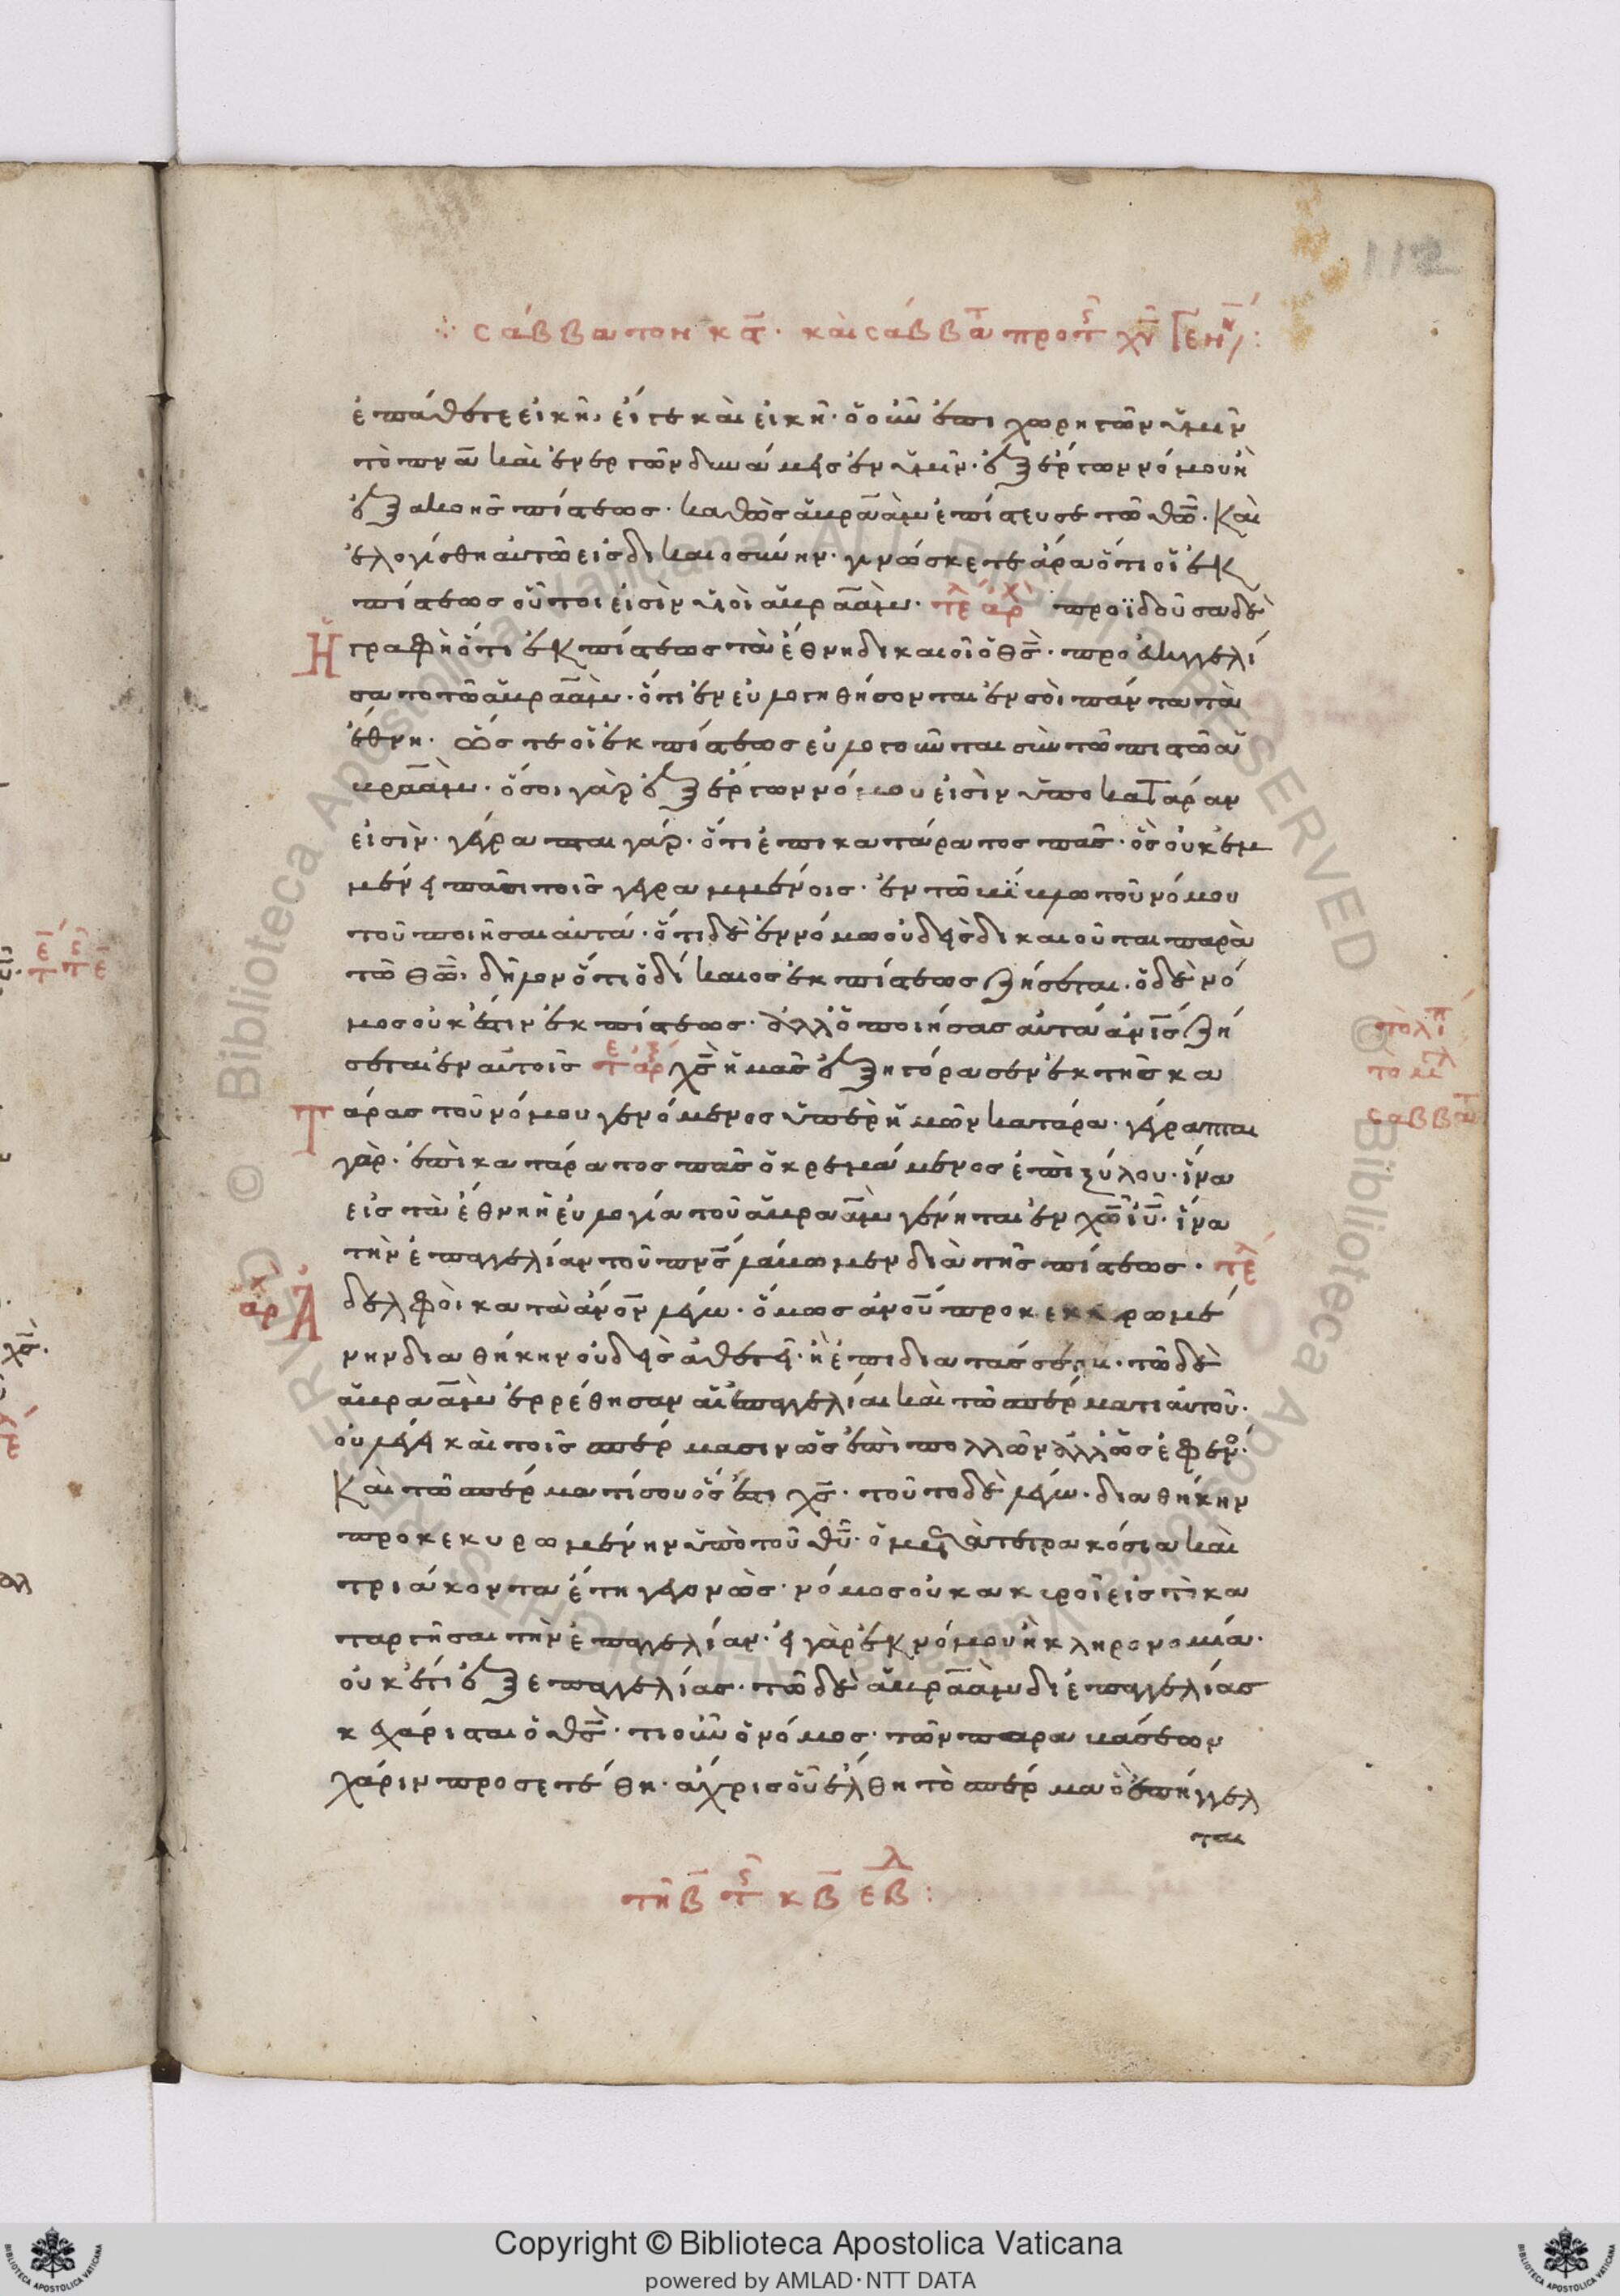 112
σάββατον κα̅. καὶ σαββα̅τ προ τ̑ς χυ̅ γεν:
ἐπάθετε εἰκῆ, εἴ τε καὶ εἰκῆ. ὁ οὖν ἐπιχωρηγῶν ὑμῖν
τὸ πνα̅ καὶ ἐνεργῶν δυνάμεις ἐν ὑμῖν. ἐξ ἔργων νόμου ἢ
ἐξ ἀκοῆς πίστεως. καθὼς ἀβραὰμ ἐπίστευσε τῶ θω̅. καὶ
ἐλογίσθη αὐτῶ εἰς δικαιοσύνην. γινώσκετε ἄρα ὅτι οἱ ἐκ
πίστεως οὗτοι εἰσὶν υἱοὶ ἀβραάμ. τε̅λ ἀρχ προϊδοῦσα δὲ
Ἡ γραφὴ ὅτι ἐκ πίστεως τὰ ἔθνη δικαιοῖ ὁ θς̅. προευηγγελί
σατο τῶ ἀβραάμ. ὅτι ἐνευλογηθήσονται ἐν σοὶ πάντα τὰ
ἔθνη. ὥστε οἱ ἐκ πίστεως εὐλογοῦνται σὺν τῶ πιστῶ ἀ
βραάμ. ὅσοι γὰρ ἐξ ἔργων νόμου εἰσὶν ὑπο κατάραν
εἰσὶν. γέγραπται γάρ. ὅτι ἐπικατάρατος πᾶς. ὃς οὐκ ἐμ
μένει πᾶσι τοῖς γεγραμμένοις. ἐν τῶ βϊβλίω τοῦ νόμου
τοῦ ποιῆσαι αὐτά. ὅτι δὲ ἐν νόμω οὐδεὶς δικαιοῦται παρὰ
τῶ θω̅. δῆλον ὅτι ὁ δίκαιος ἐκ πίστεως ζήσεται. ὁ δὲ νό
μος οὐκ ἔστιν ἐκ πίστεως. ἀλλ ὁ ποιήσας αὐτὰ ἄνος̅ ζή
σεται ἐν αὐτοῖς χς̅ ἡμᾶς ἐξηγόρασεν ἐκ τῆς κα
Τ άρας τοῦ νόμου γενόμενος ὑπὲρ ἡμῶν κατάρα. γέγραπται
γάρ. ἐπικατάρατος πᾶς ὁ κρεμάμενος ἐπὶ ξύλου. ἵνα
εἰς τὰ ἔθνη ἡ εὐλογία τοῦ ἀβραὰμ γένηται ἐν χω̅ ιυ̅. ἵνα
τὴν ἐπαγγελίαν τοῦ πνς̅ λάβωμεν διὰ τῆς πίστεως. τε̅λ
ἀρχ Ἀ δελφοὶ κατὰ ἄνον̅ λέγω. ὅμως ἀνου̅ προκεκυρωμέ
νην διαθήκην οὐδεὶς ἀθετεῖ. ἢ ἐπιδιατάσσεται. τῶ δὲ
ἀβραὰμ ἐρρέθησαν αἱ ἐπαγγελίαι καὶ τῶ σπέρματι αὐτοῦ.
οὐ λέγει καὶ τοῖς σπέρμασιν ὡς ἐπὶ πολλῶν ἀλλ ὡς ἐφ ενο.
καὶ τῶ σπέρματί σου ὅς ἐστι χς̅. τοῦτο δὲ λέγω. διαθήκην
προκεκυρωμένην ὑπὸ τοῦ θυ̅. ὁ μετὰ τετρακόσια καὶ
τριάκοντα ἔτη γεγονὼς. νόμος οὐκ ἀκυροῖ εἰς τὸ κα
ταργῆσαι τὴν ἐπαγγελίαν. εἰ γὰρ ἐκ νόμου ἡ κληρονομία.
οὐκέτι ἐξ ἐπαγγελίας. τῶ δὲ ἀβραὰμ δι ἐπαγγελίας
κεχάρισται ὁ θς̅. τί οὖν ὁ νόμος. τῶν παραβάσεων
χάριν προσετέθη. ἄχρις οὗ ἔλθη τὸ σπέρμα ὃ ἐπήγγελ
ται
σαββα̅τ
τῆ β̅ τ̑ς κβ̅ ἑβ̅: